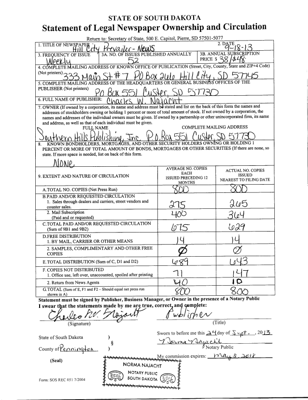 STATE OF SOUTH DAKOTA
Statement of Legal Newspaper Ownership and Circulation
Return to: Secretary of State, 500 E. Capitol, Pierre, SD 57501-5077
1. TITLE OF NEWSPAPER
Hill City Prevailer-News
2. DATE
9-18-13
3. FREQUENCY OF ISSUE
Weekly
3A. NO. OF ISSUES PUBLISHED ANNUALLY
52
3B. ANNUAL SUBSCRIPTION PRICE $
4. COMPLETE MAILING ADDRESS OF KNOWN OFFICE OF PUBLICATION (Street, City, County, State and ZIP+4 Code)
(Not printers)
333 Main St #7 PO Box 266 Hill City, SD 57745
5. COMPLETE MAILING ADDRESS OF THE HEADQUARTERS OF GENERAL BUSINESS OFFICES OF THE
PUBLISHER (Not printer)
PO Box 551 Custer, SD 57730
6. FULL NAME OF PUBLISHER:
Charles W. Najacht
7. OWNER (If owned by a corporation, its name and address must be stated and
FULL NAME
COMPLETE MAILING ADDRESS
Southern Hills Publishing, Inc. P.O. Box 551 Custer, SD 57730
8. KNOWN BONDHOLDERS, MORTGAGEES, AND OTHER SECURITY HOLDERS OWNING OR HOLDING 1
PERCENT OR MORE OF TOTAL AMOUNT OF BONDS, MORTGAGES OR OTHER SECURITIES (If there are none, so
state. If more space is needed, list on back of this form.
None
9. EXTENT AND NATURE OF CIRCULATION
AVERAGE NO. COPIES EACH ISSUE PRECEDING 12 MONTHS
ACTUAL NO. COPIES ISSUED NEAREST TO FILING DATE
A. TOTAL NO. COPIES (Net Press Run)
800
800
B. PAID AND/OR REQUESTED CIRCULATION
1. Sales through dealers and carriers, street vendors and
counter sales.
275
265
2. Mail Subscription
(Paid and or requested)
400
364
C. TOTAL PAID AND/OR REQUESTED CIRCULATION
(Sum of 9B1 and 9B2)
675
629
D. FREE DISTRIBUTION
1. BY MAIL, CARRIER OR OTHER MEANS
14
14
2. SAMPLES, COMPLIMENTARY AND OTHER FREE
COPIES
Ø
Ø
E. TOTAL DISTRIBUTION (Sum of C, D1 and D2)
689
643
F. COPIES NOT DISTRIBUTED
1. Office use, left over, unaccounted, spoiled after printing
71
147
2. Return from News Agents
40
10
G. TOTAL (Sum of E, F1 and F2 - Should equal net press run shown in A)
800
800
Statement must be signed by Publisher, Business Manager, or Owner in the presence of a Notary Public
I swear that the statements made by me are true, correct, and complete:
Charles W. Najacht
Publisher
(Signature)
(Title)
Sworn to before me this 24 day of Sept. 2013
State of South Dakota )
County of Pennington )
Norma Najacht
Notary Public
My commission expires:
(Seal)
NORMA NAJACHT
NOTARY PUBLIC
SOUTH DAKOTA
Form: SOS REC 051 7/2004